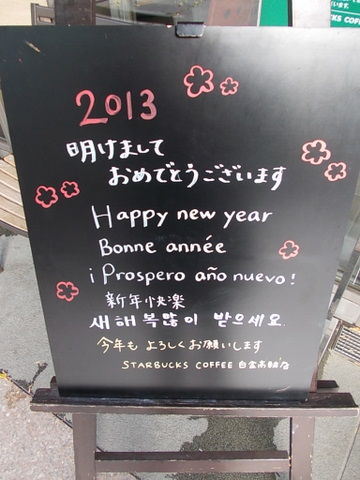 2013
明けまして
おめでとうございます
Happy new year
Bonne année
¡Prospero año nuevo!
新年快楽
새해 복많이 받으세요.
今年も よろしくお願いします
STARBUCKS COFFEE 白金高輪店